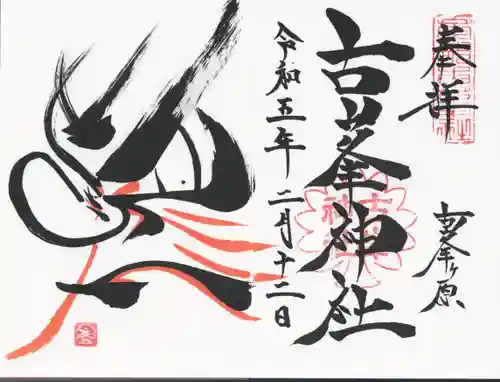 奉拝
古峯ヶ原
古峯神社
令和五年 二月十二日